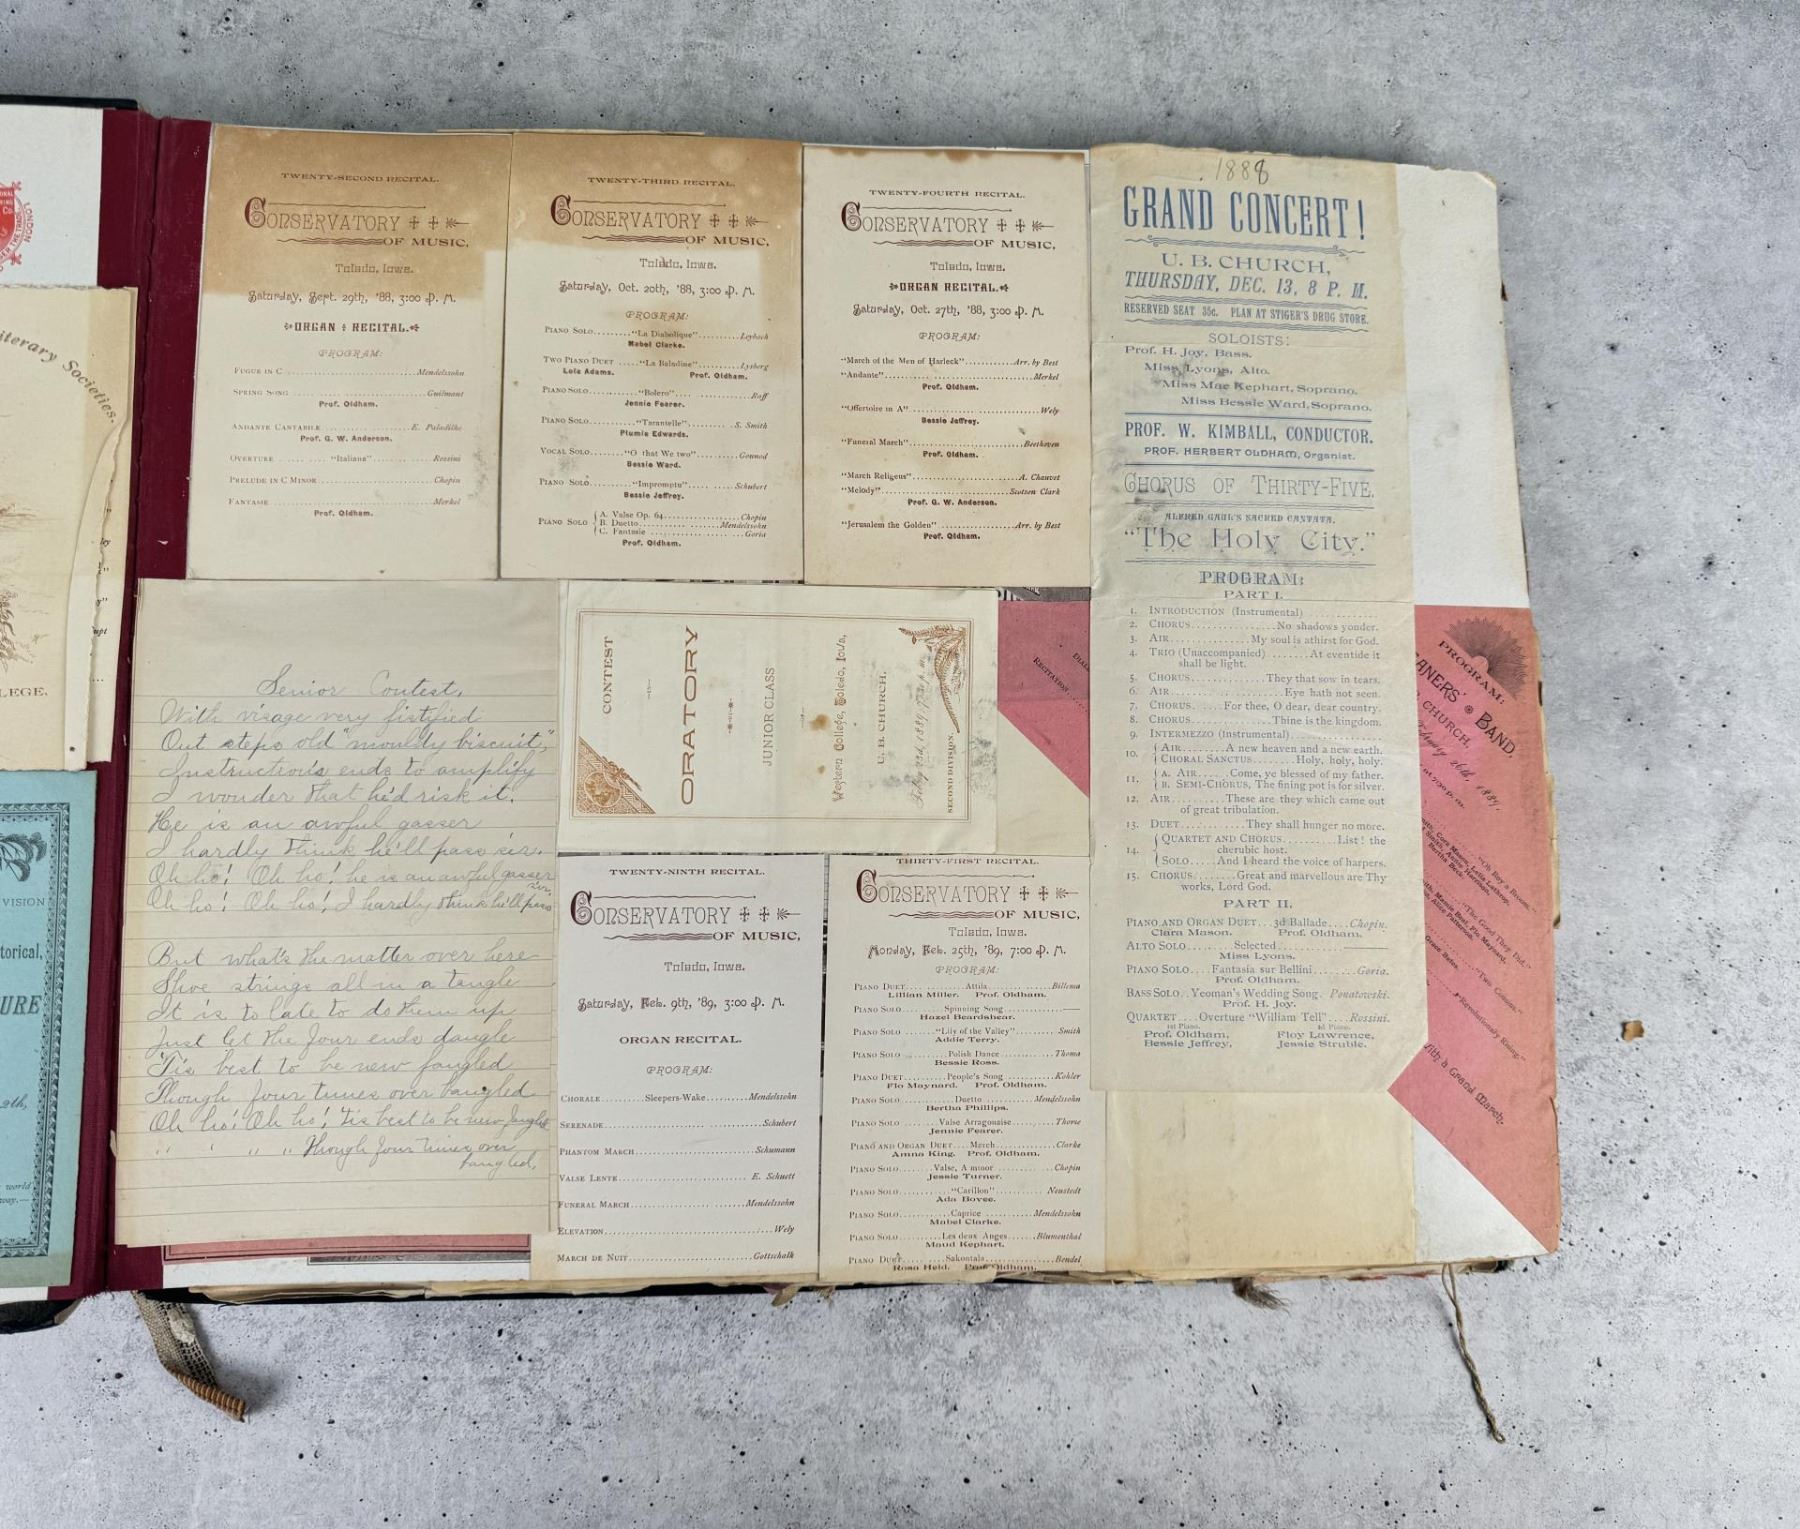 LONDON
terary Societies.
LEGE,
VISION
torical,
URE
TWENTY-SECOND RECITAL.
CONSERVATORY
OF MUSIC,
Toledo, Iowa.
Saturday, Sept. 29th, '88, 3:00 P. M.
ORGAN RECITAL.
PROGRAM:
FUGUE IN C ........ Mendelssohn
SPRING SONG ........ Guilmant
Prof. Oldham.
ANDANTE CANTABILE ........ E. Paladilhe
Prof. G. W. Anderson.
OVERTURE ........ "Italiana" ........ Rossini
PRELUDE IN C MINOR ........ Chopin
FANTASIE ........ Merkel
Prof. Oldham.
TWENTY-THIRD RECITAL.
CONSERVATORY
OF MUSIC,
Toledo, Iowa.
Saturday, Oct. 20th, '88, 3:00 P. M.
PROGRAM:
PIANO SOLO ........ "La Diabolique" ........ Leybach
Mabel Clarke.
TWO PIANO DUET ........ "La Baladine" ........ Lysberg
Lola Adams. Prof. Oldham.
PIANO SOLO ........ "Bolero" ........ Raff
Jennie Fearer.
PIANO SOLO ........ "Tarantelle" ........ S. Smith
Plumie Edwards.
VOCAL SOLO ........ "O that We two" ........ Gounod
Bessie Ward.
PIANO SOLO ........ "Impromptu" ........ Schubert
Bessie Jeffrey.
PIANO SOLO
A. Valse Op. 64 ........ Chopin
B. Duetto ........ Mendelssohn
C. Fantasie ........ Goria
Prof. Oldham.
TWENTY-FOURTH RECITAL.
CONSERVATORY
OF MUSIC,
Toledo, Iowa.
ORGAN RECITAL.
Saturday, Oct. 27th, '88, 3:00 P. M.
PROGRAM:
"March of the Men of Harleck" ........ Arr. by Best
"Andante" ........ Merkel
Prof. Oldham.
"Offertoire in A" ........ Wely
Bessie Jeffrey.
"Funeral March" ........ Beethoven
Prof. Oldham.
"March Religeus" ........ A. Chauvet
"Melody" ........ Scotson Clark
Prof. G. W. Anderson.
"Jerusalem the Golden" ........ Arr. by Best
Prof. Oldham.
1888
GRAND CONCERT!
U. B. CHURCH,
THURSDAY, DEC. 13, 8 P. M.
RESERVED SEAT 35c. PLAN AT STIGER'S DRUG STORE.
SOLOISTS:
Prof. H. Joy, Bass.
Miss Lyons, Alto.
Miss Mae Kephart, Soprano.
Miss Bessie Ward, Soprano.
PROF. W. KIMBALL, CONDUCTOR.
PROF. HERBERT OLDHAM, Organist.
CHORUS OF THIRTY-FIVE.
ALFRED GAUL'S SACRED CANTATA.
"The Holy City."
PROGRAM:
PART I.
1. INTRODUCTION (Instrumental) ........
2. CHORUS ........ No shadows yonder.
3. AIR ........ My soul is athirst for God.
4. TRIO (Unaccompanied) ........ At eventide it
shall be light.
5. CHORUS ........ They that sow in tears.
6. AIR ........ Eye hath not seen.
7. CHORUS ........ For thee, O dear, dear country.
8. CHORUS ........ Thine is the kingdom.
9. INTERMEZZO (Instrumental) ........
10. AIR ........ A new heaven and a new earth.
CHORAL SANCTUS ........ Holy, holy, holy.
11. A. AIR ........ Come, ye blessed of my father.
B. SEMI-CHORUS, The fining pot is for silver.
12. AIR ........ These are they which came out
of great tribulation.
13. DUET ........ They shall hunger no more.
14. QUARTET AND CHORUS ........ List! the
cherubic host.
SOLO ........ And I heard the voice of harpers.
15. CHORUS ........ Great and marvellous are Thy
works, Lord God.
PART II.
PIANO AND ORGAN DUET ... 3d Ballade ... Chopin.
Clara Mason. Prof. Oldham.
ALTO SOLO ........ Selected ........
Miss Lyons.
PIANO SOLO ... Fantasia sur Bellini ........ Goria.
Prof. Oldham.
BASS SOLO .. Yeoman's Wedding Song. Ponatowski.
Prof. H. Joy.
QUARTET ... Overture "William Tell" ... Rossini.
1st Piano. 2d Piano.
Prof. Oldham, Floy Lawrence,
Bessie Jeffrey, Jessie Struble.
Senior Contest.
With visage very fistified
Out steps old "mouldy biscuit,"
Instructions ends to amplify
I wonder that he'd risk it.
He is an awful gasser
I hardly think he'll pass sir.
Oh ho! Oh ho! he is an awful gasser
Oh ho! Oh ho! I hardly think he'll pass
sir.
But what's the matter over here
Shoe strings all in a tangle
It is to late to do them up
Just let the four ends dangle
'Tis best to be new fangled
Though four times over bangled
Oh ho! Oh ho! 'tis best to be new fangled
" " " " Though four times over
bangled.
CONTEST
ORATORY
JUNIOR CLASS
Western College, Toledo, Iowa.
U. B. CHURCH.
SECOND DIVISION
RECITATION
TWENTY-NINTH RECITAL.
CONSERVATORY
OF MUSIC,
Toledo, Iowa.
Saturday, Feb. 9th, '89, 3:00 P. M.
ORGAN RECITAL.
PROGRAM:
CHORALE ........ Sleepers-Wake ........ Mendelssohn
SERENADE ........ Schubert
PHANTOM MARCH ........ Schumann
VALSE LENTE ........ E. Schuett
FUNERAL MARCH ........ Mendelssohn
ELEVATION ........ Wely
MARCH DE NUIT ........ Gottschalk
THIRTY-FIRST RECITAL.
CONSERVATORY
OF MUSIC,
Toledo, Iowa.
Monday, Feb. 25th, '89, 7:00 P. M.
PROGRAM:
PIANO DUET ........ Attila ........ Billema
Lillian Miller. Prof. Oldham.
PIANO SOLO ........ Spinning Song ........
Hazel Beardshear.
PIANO SOLO ........ "Lily of the Valley" ........ Smith
Addie Terry.
PIANO SOLO ........ Polish Dance ........ Thoma
Bessie Ross.
PIANO DUET ........ People's Song ........ Kohler
Flo Maynard. Prof. Oldham.
PIANO SOLO ........ Duetto ........ Mendelssohn
Bertha Phillips.
PIANO SOLO ........ Valse Arragonaise ........ Thorne
Jennie Fearer.
PIANO AND ORGAN DUET ... March ........ Clarke
Amna King. Prof. Oldham.
PIANO SOLO ........ Valse, A minor ........ Chopin
Jessie Turner.
PIANO SOLO ........ "Carillon" ........ Neustedt
Ada Bovee.
PIANO SOLO ........ Caprice ........ Mendelssohn
Mabel Clarke.
PIANO SOLO ........ Les deux Anges ........ Blumenthal
Maud Kephart.
PIANO DUET ........ Sakontala ........ Bendel
Rosa Held. Prof. Oldham.
PROGRAM:
ANERS' BAND,
CHURCH,
26th, 1889.
"The Good They Did."
Grace Bates
"Revolutionary Rising."
With a Grand March.